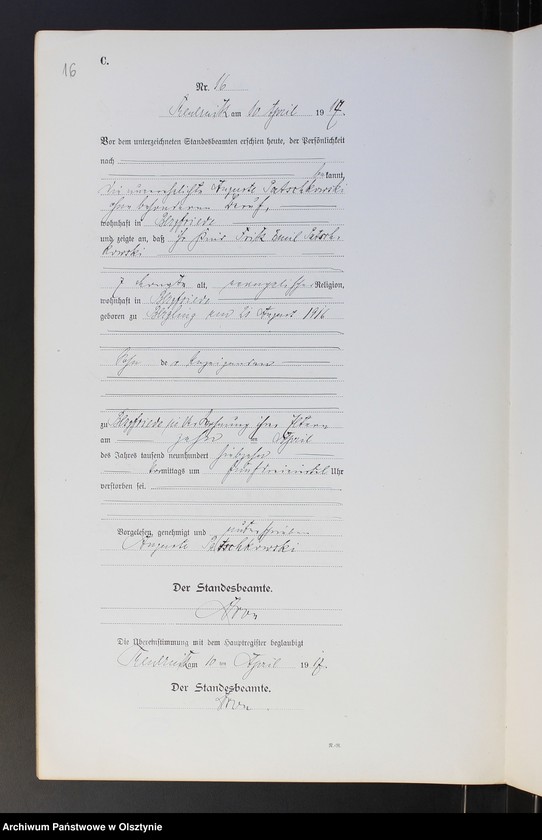 16
C.
Nr. 16
am 10 April 1917.
Vor dem unterzeichneten Standesbeamten erschien heute, der Persönlichkeit
nach
bekannt,
die unverehelichte Auguste Patschkowski
ohne besonderen Beruf,
wohnhaft in
und zeigte an, daß ihr Kind Emil Patsch-
kowski
7 Monate alt, evangelischer Religion,
wohnhaft in
geboren zu am 20 August 1916
Sohn der Anzeigenden
zu in der Wohnung ihrer Eltern
am April
des Jahres tausend neunhundert siebzehn
Vormittags um Uhr
verstorben sei.
Vorgelesen, genehmigt und unterschrieben
Auguste Patschkowski
Der Standesbeamte.
Die Übereinstimmung mit dem Hauptregister beglaubigt
am 10 ten April 1917.
Der Standesbeamte.
Archiwum Państwowe w Olsztynie